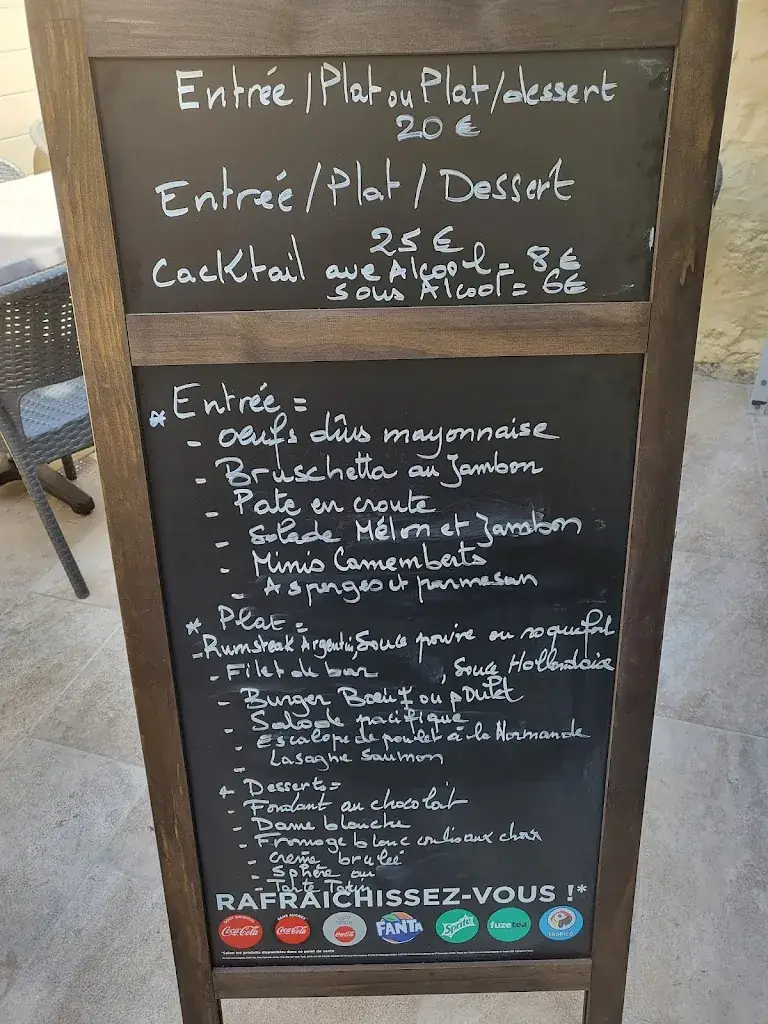 Entrée / Plat ou Plat / dessert
20 €
Entrée / Plat / Dessert
25 €
Cacktail avec Alcool = 8€
sous Alcool = 6€
* Entrée =
- oeufs dûrs mayonnaise
- Bruschetta au Jambon
- Pate en croute
- Salade Mélon et Jambon
- Minis Camemberts
- Asperges et parmesan
* Plat =
- Rumsteak Argentin, Sauce poivre ou roquefort
- Filet de bar , Sauce Hollandaise
- Burger Boeuf ou poulet
- Salade pacifique
- Escalope de poulet à la Normande
- Lasagne Saumon
* Desserts =
- Fondant au chocolat
- Dame blanche
- Fromage blanc coulis aux choix
- creme brulée
- Sphère
- Tarte Tatin
RAFRAÎCHISSEZ-VOUS !*
GOÛT ORIGINAL Coca-Cola
SANS SUCRES Coca-Cola
Coca-Cola
FANTA
Sprite
fuzetea
TROPICO
*Selon les produits disponibles dans ce point de vente